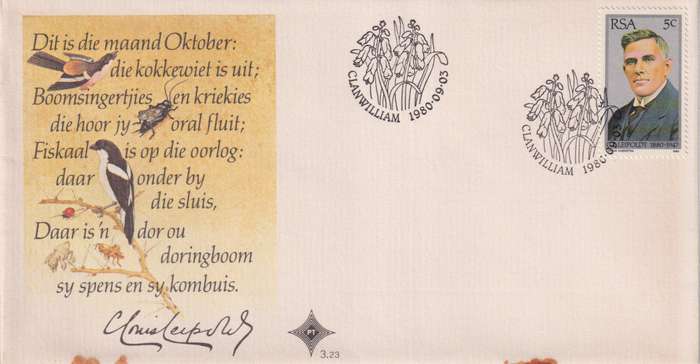 Dit is die maand Oktober:
die kokkewiet is uit;
Boomsingertjies en kriekies
die hoor jy oral fluit;
Fiskaal is op die oorlog:
daar onder by
die sluis,
Daar is 'n dor ou
doringboom
sy spens en sy kombuis.
C Louis Leipoldt
PT
3.23
CLANWILLIAM 1980·09·03
CLANWILLIAM 1980·09·03
RSA 5c
LEIPOLDT 1880-1947